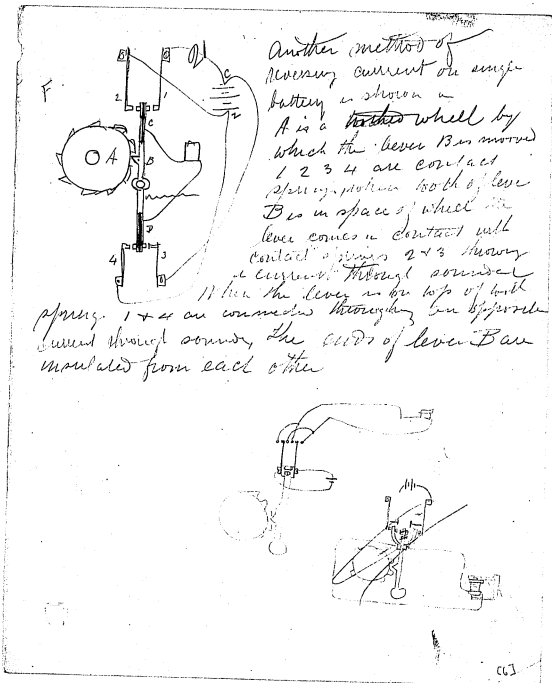 Another method of
reversing current on single
battery is shown in
A is a toothed wheel by
which the lever B is moved
1 2 3 4 are contact
springs when tooth of lever
B is in space of wheel the
lever comes in contact with
contact springs 2 & 3 throwing
a current through sounder
When the lever is on top of tooth
springs 1 & 4 are connected throwing an opposite
current through sounder, The ends of lever B are
insulated from each other
F
2 1
C
C
Z
A
B
D
4 3
[6]